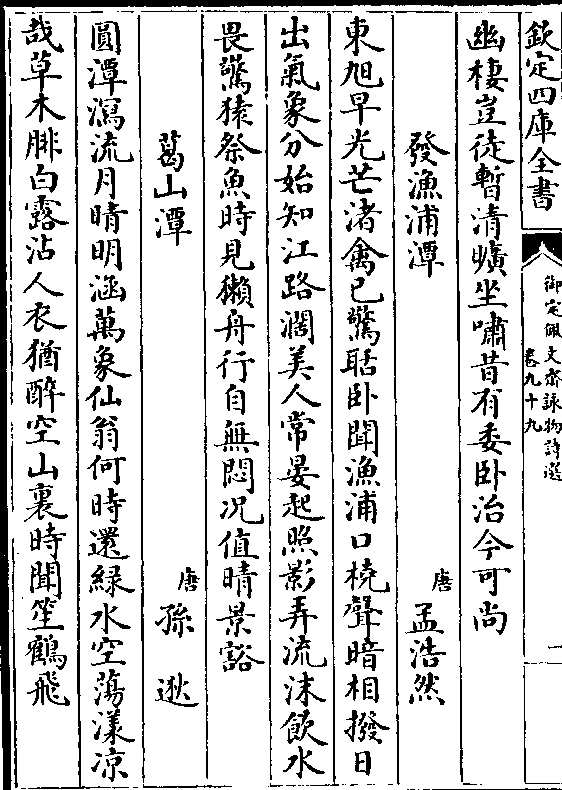 欽定四庫全書
御定佩文齋詠物詩選
卷九十九
二
幽棲豈徒暫清曠坐嘯昔有委卧治今可尚
發漁浦潭
唐
孟浩然
東旭早光芒渚禽已驚聒卧聞漁浦口橈聲暗相撥日
出氣象分始知江路濶美人常晏起照影弄流沫飲水
畏驚猿祭魚時見獺舟行自無悶况值晴景豁
葛山潭
唐
孫逖
圓潭瀉流月晴明涵萬象仙翁何時還緑水空蕩漾凉
哉草木腓白露沾人衣猶醉空山裏時聞笙鶴飛